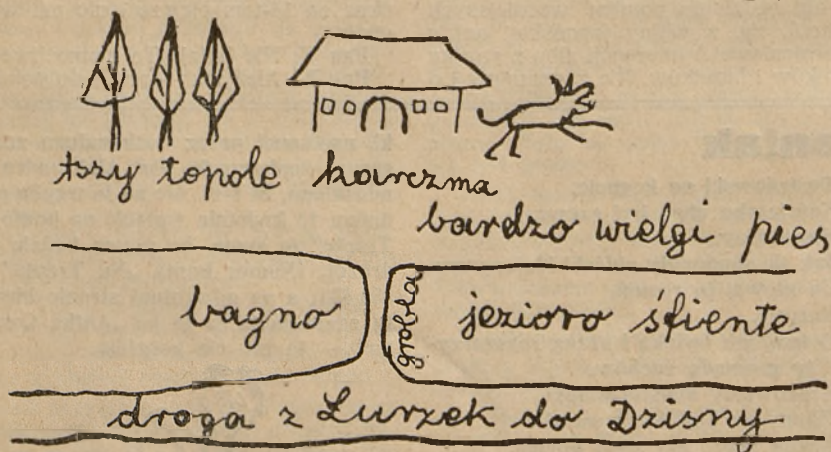 tszy topole karczma
bardzo wielgi pies
bagno grobla jezioro śfiente
droga z Łurzek do Dzisny